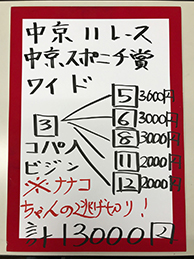 中京11レース
中京スポニチ賞
ワイド
3
5 3600円
6 3000円
8 3000円
11 2000円
12 2000円
コパノ
ビジン
※ナナコ
ちゃんの逃げ切り!
計13000円